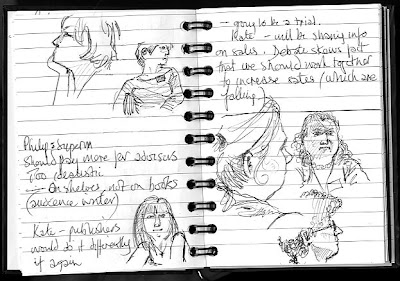 Philip & Superm
Should pay more for advisers
Too idealistic
On shelves, not on books
(audience writer)
Kate - publishers
would do it differently
if again
- going to be a trial.
Kate - will be sharing info
on sales. Debate shows just
that we should work together
to increase sales (which are
failing)